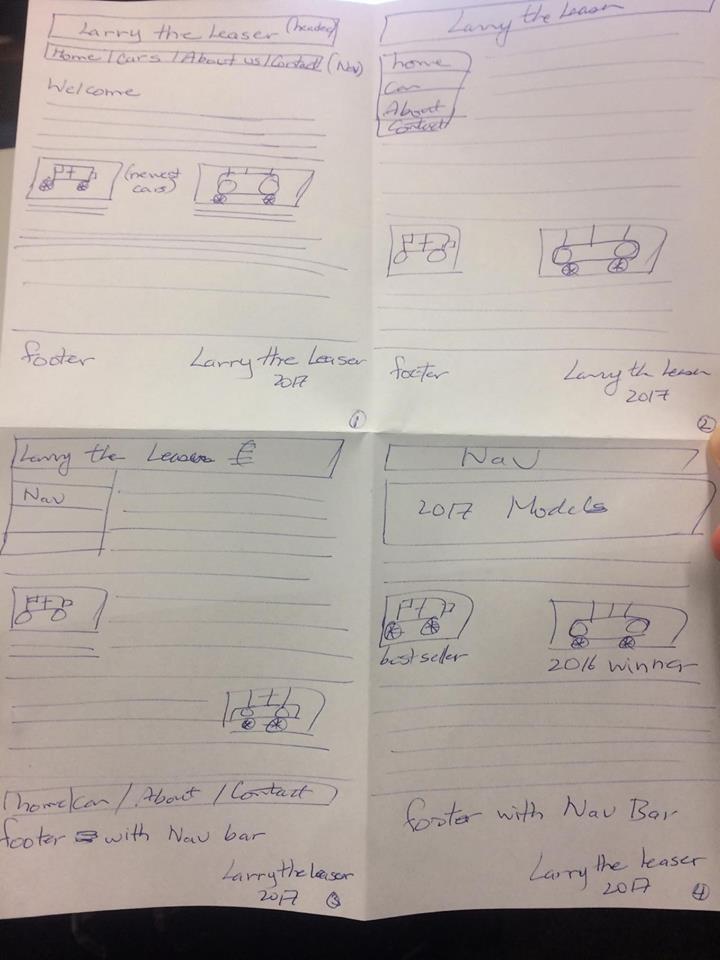 Larry the Leaser (header)
Home / Cars / About us / Contact (Nav)
Welcome
(newest
cars)
footer
Larry the Leaser
2017
1
Larry the Leaser
home
Car
About
Contact
footer
Larry the Leaser
2017
2
Larry the Leaser
Nav
home / car / About / Contact
footer with Nav bar
Larry the leaser
2017
3
Nav
2017 Models
best seller
2016 winner
footer with Nav Bar
Larry the leaser
2017
4